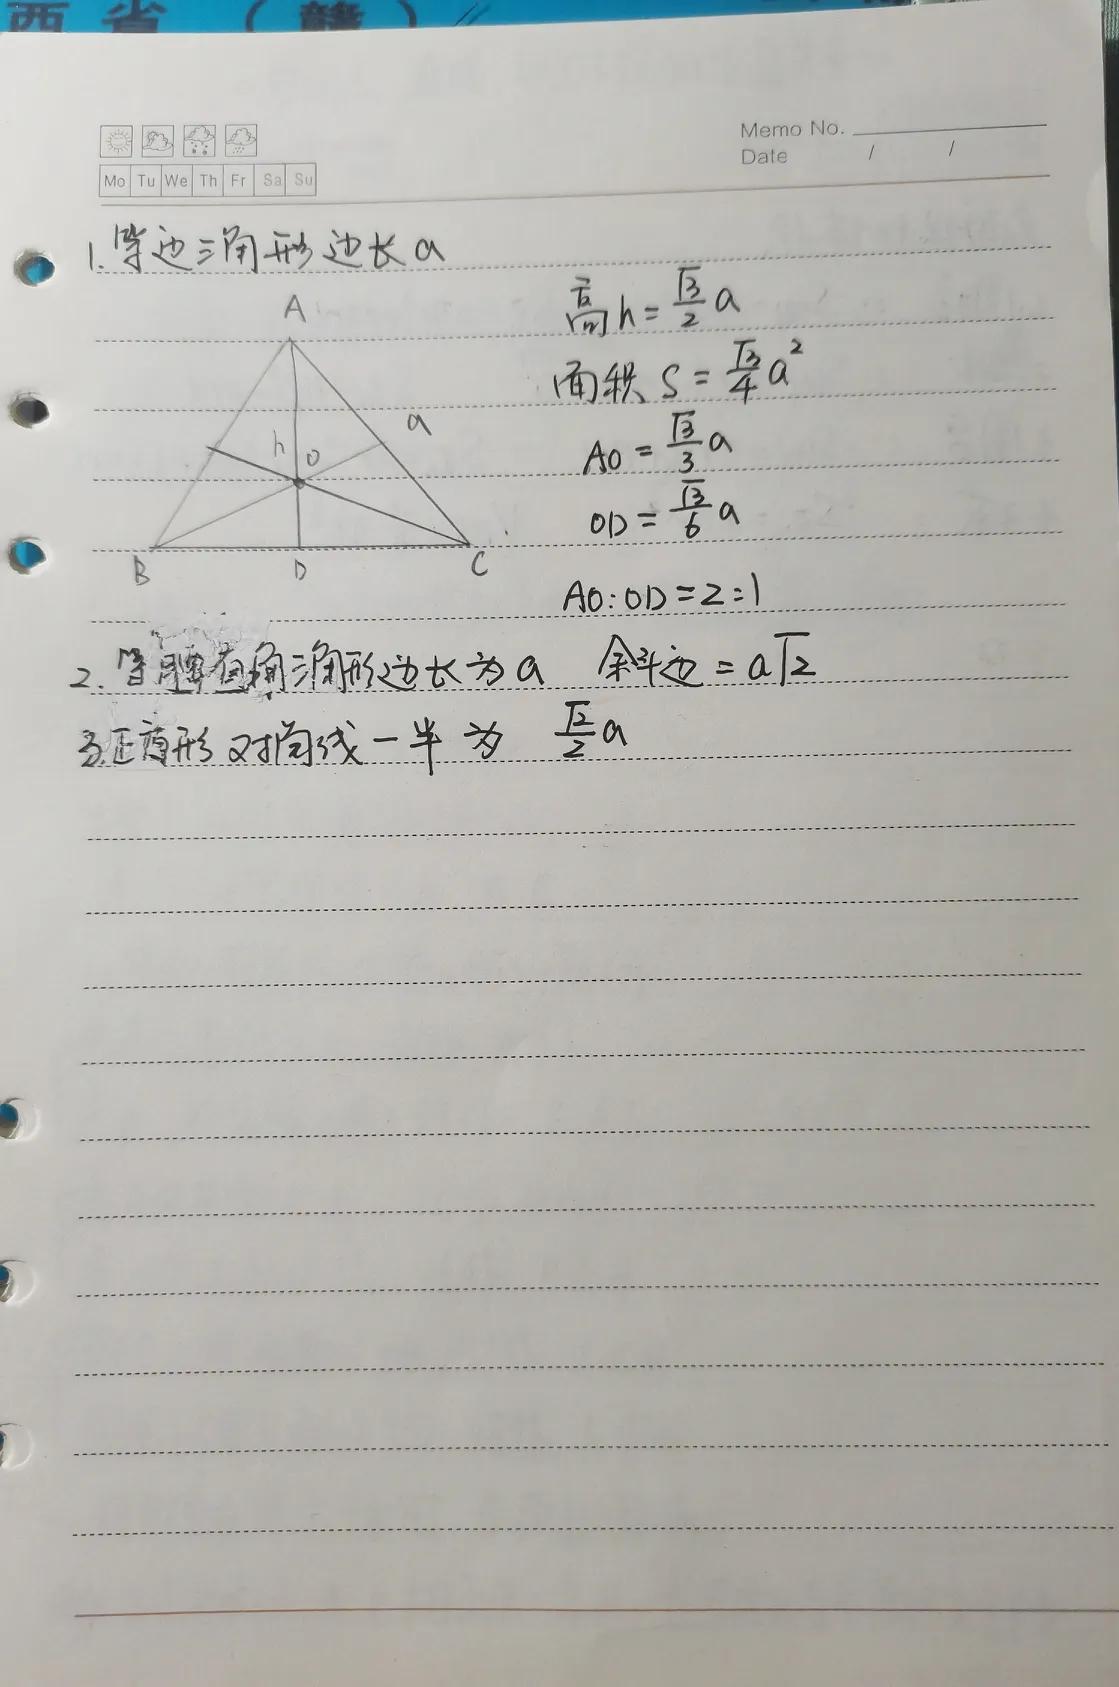 西省（赣）
Memo No.
Date / /
Mo Tu We Th Fr Sa Su
1. 等边三角形边长a
A
a
h
O
B
D
C
高h=√3/2 a
面积 S=√3/4 a²
AO=√3/3 a
OD=√3/6 a
AO:OD=2:1
2. 等腰直角三角形边长为a 斜边=a√2
3.正方形对角线一半为 √2/2 a